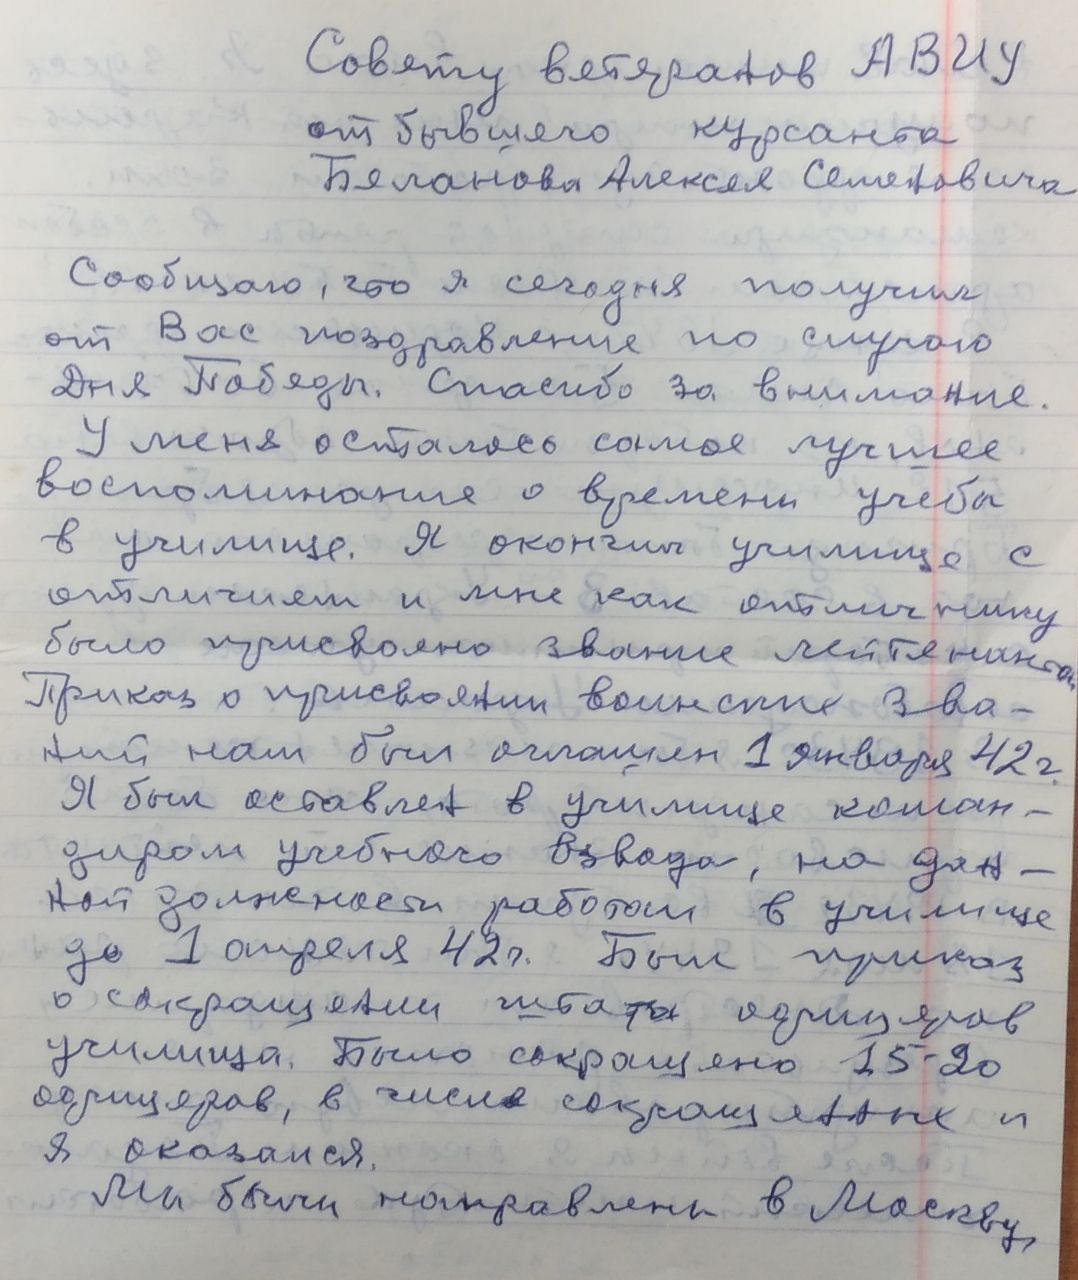 Совету ветеранов АВИУ
от бывшего курсанта
Беланова Алексея Семеновича
Сообщаю, что я сегодня получил
от Вас поздравление по случаю
Дня Победы. Спасибо за внимание.
У меня осталось самое лучшее
воспоминание о времени учебы
в училище. Я окончил училище с
отличием и мне как отличнику
было присвоено звание лейтенанта.
Приказ о присвоении воинских зва-
ний нам был оглашен 1 января 42 г.
Я был оставлен в училище коман-
диром учебного взвода, на дан-
ной должности работал в училище
до 1 апреля 42 г. Был приказ
о сокращении штата офицеров
училища. Было сокращено 15-20
офицеров, в числе сокращенных и
я оказался.
Мы были направлены в Москву,